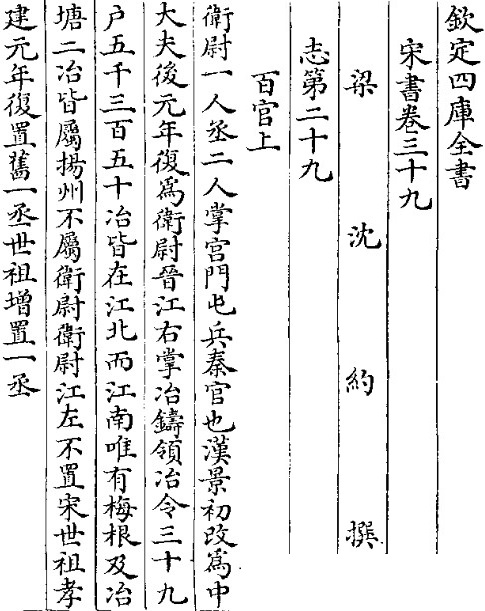 欽定四庫全書
宋書卷三十九
梁沈約撰
志第二十九
百官上
衛尉一人丞二人掌宮門屯兵秦官也漢景初改爲中
大夫後元年復爲衛尉晉江右掌冶鑄領冶令三十九
户五千三百五十冶皆在江北而江南唯有梅根及冶
塘二冶皆屬揚州不屬衛尉衛尉江左不置宋世祖孝
建元年復置舊一丞世祖增置一丞